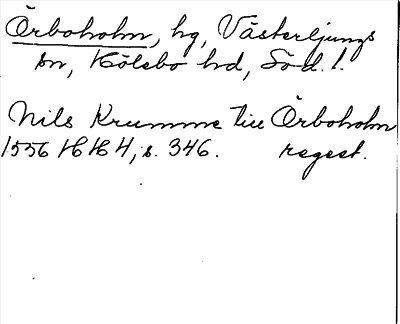 Örboholm, hg, Västerljungs
sn, Hölebo hd, Söd. l.
Nils Krumme till Örboholm
1556 HH 4, s. 346. regest.